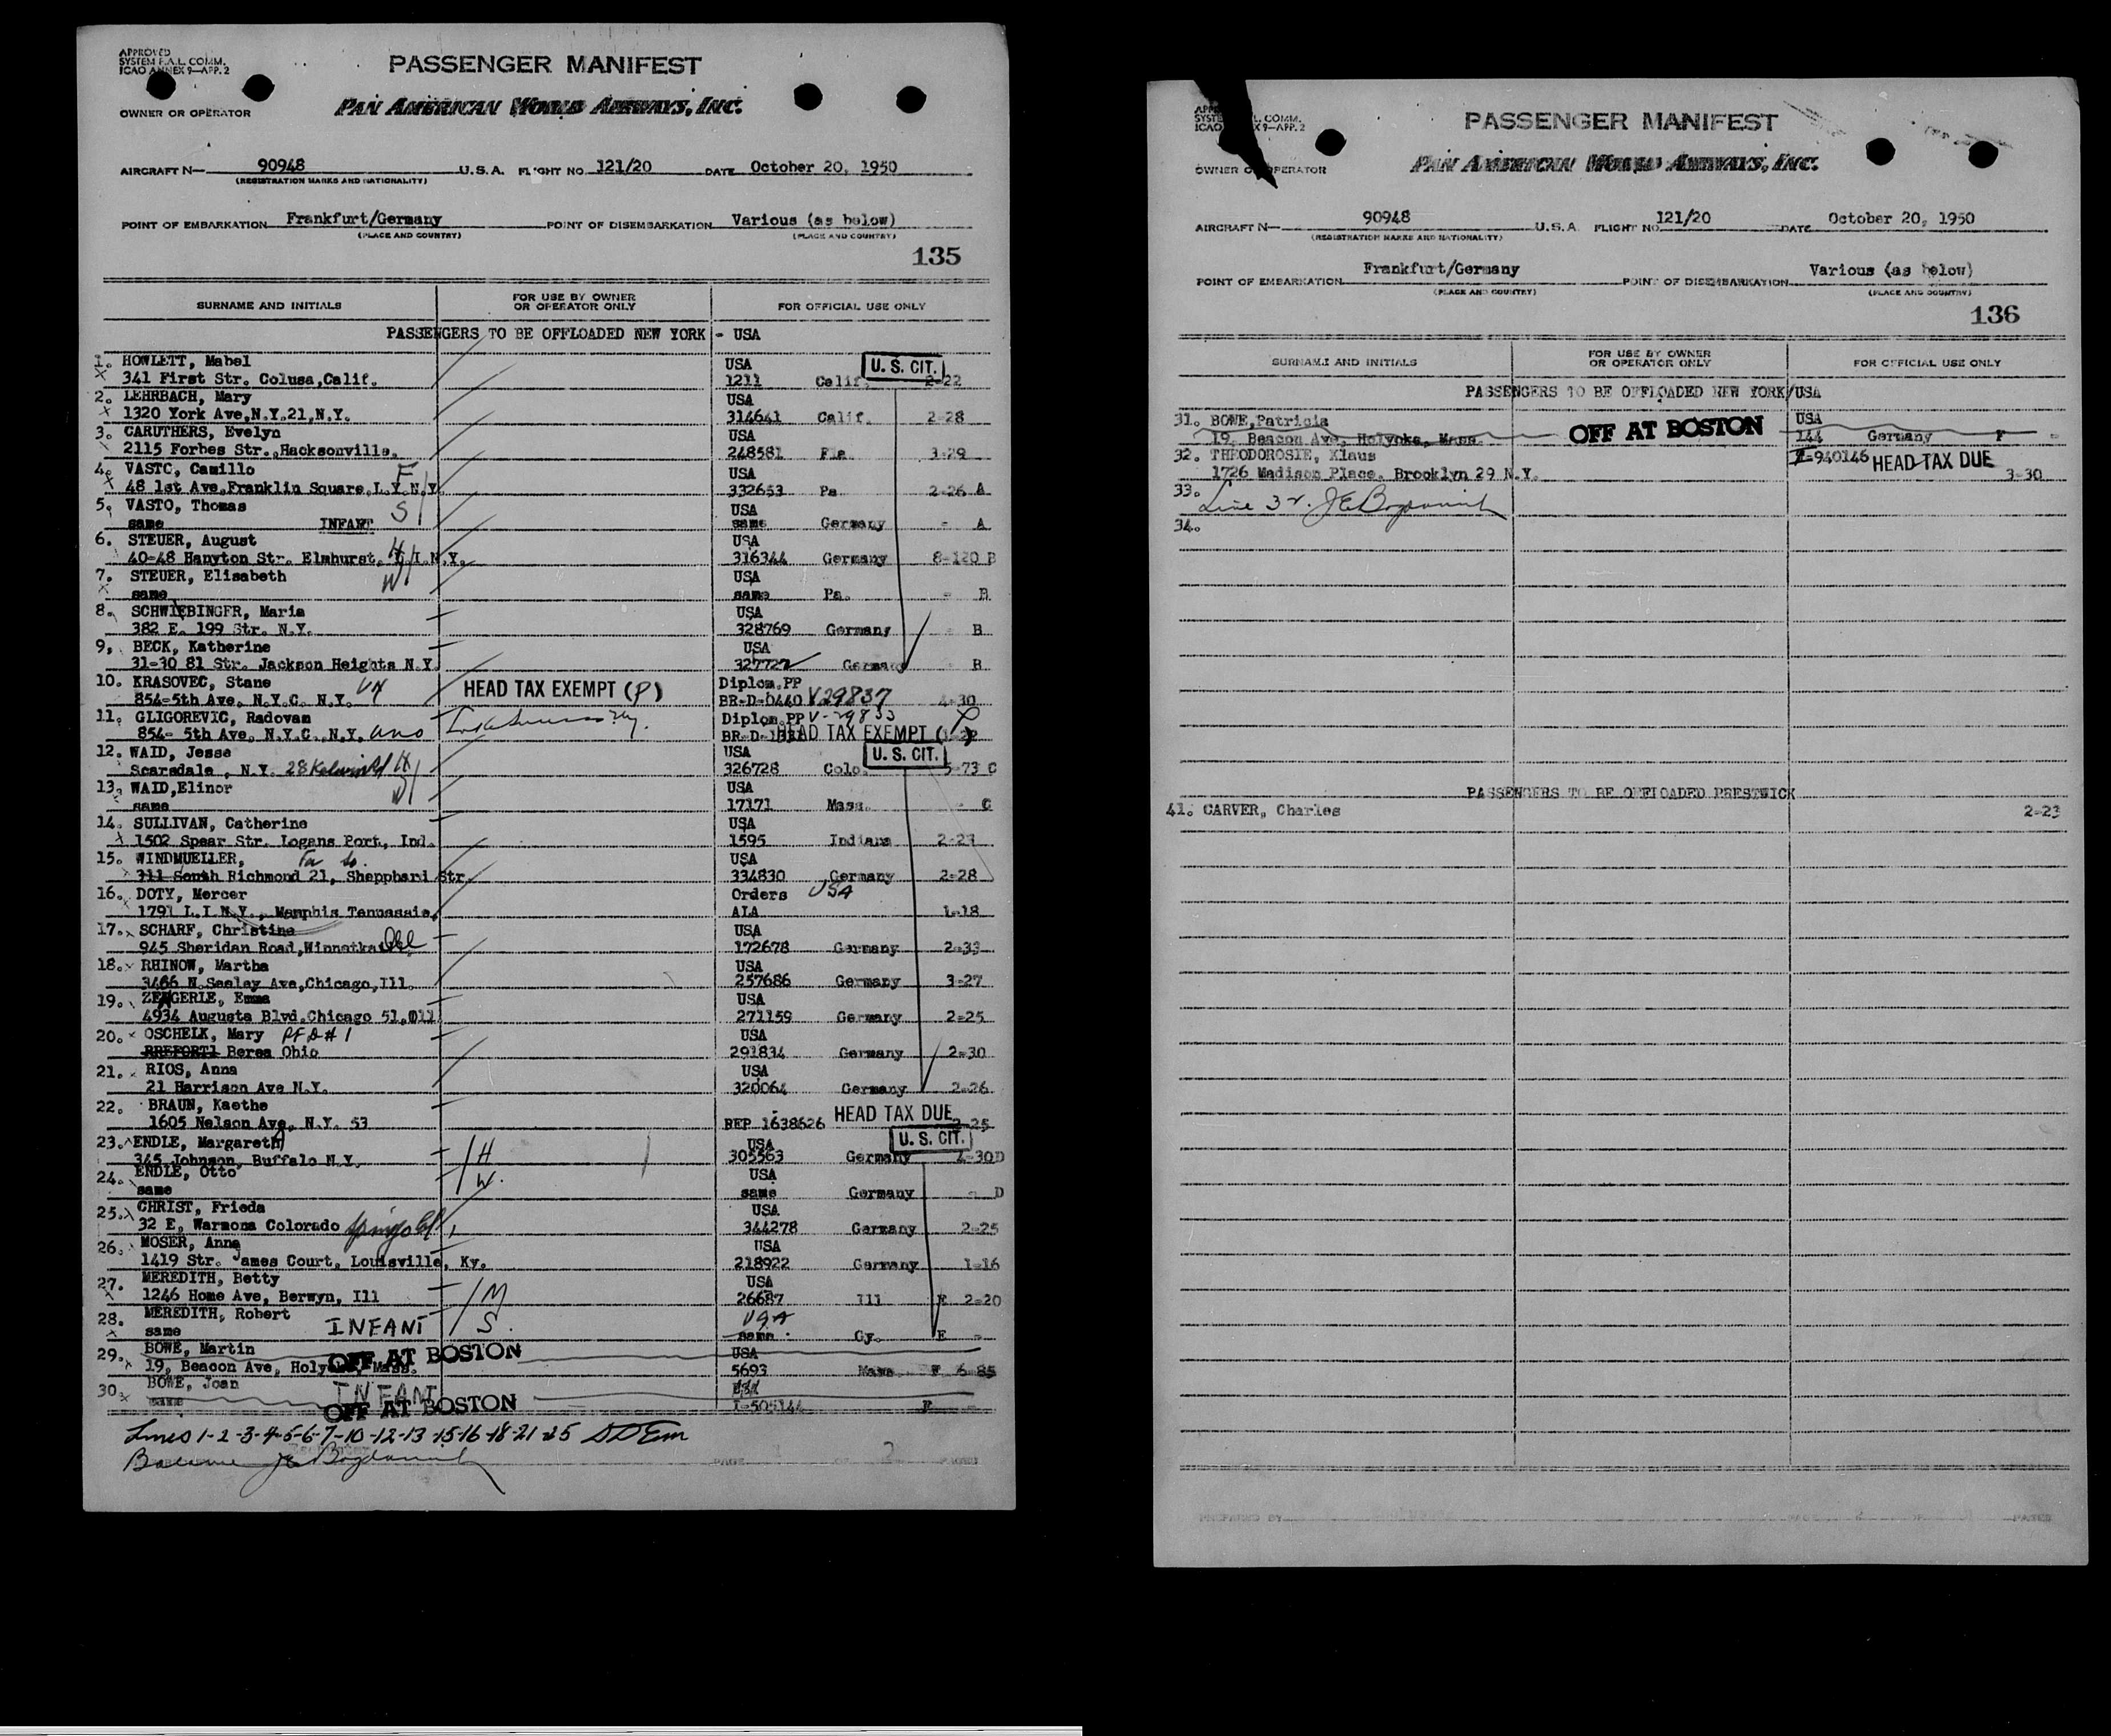 APPROVED
SYSTEM F.A.L. COMM.
ICAO ANNEX 9—APP. 2
PASSENGER MANIFEST
OWNER OR OPERATOR
PAN AMERICAN WORLD AIRWAYS, INC.
AIRCRAFT N— 90948 U.S.A. FLIGHT NO. 121/20 DATE October 20, 1950
(REGISTRATION MARKS AND NATIONALITY)
POINT OF EMBARKATION Frankfurt/Germany POINT OF DISEMBARKATION Various (as below)
(PLACE AND COUNTRY) (PLACE AND COUNTRY)
135
SURNAME AND INITIALS FOR USE BY OWNER OR OPERATOR ONLY FOR OFFICIAL USE ONLY
PASSENGERS TO BE OFFLOADED NEW YORK - USA
1. HOWLETT, Mabel USA U. S. CIT.
341 First Str. Colusa,Calif. 1211 Calif. 2-22
2. LEHRBACH, Mary USA
1320 York Ave,N.Y.21,N.Y. 314641 Calif. 2-28
3. CARUTHERS, Evelyn USA
2115 Forbes Str.,Hacksonville. 248581 Fla. 3-29
4. VASTO, Camillo F USA
48 1st Ave,Franklin Square,L.Y.N.Y. 332653 Pa 2-26 A
5. VASTO, Thomas S USA
same INFANT same Germany - A
6. STEUER, August H USA
40-48 Hanyton Str. Elmhurst, L.I.N.Y. 316344 Germany 8-120 B
7. STEUER, Elisabeth W USA
same same Pa. - B
8. SCHWIEBINGER, Maria USA
382 E. 199 Str. N.Y. 328769 Germany - B
9. BECK, Katherine USA
31-30 81 Str. Jackson Heights N.Y. 327722 Germany - B
10. KRASOVEC, Stane HEAD TAX EXEMPT (P) Diplom.PP
854-5th Ave. N.Y.C. N.Y. UN BR-D-0440 V29837 4-30
11. GLIGOREVIC, Radovan Diplom.PP V-29833
854- 5th Ave. N.Y.C. N.Y. UNO HEAD TAX EXEMPT
12. WAID, Jesse USA U. S. CIT.
Scarsdale, N.Y. 28 Kelwin Rd H 326728 Colo. 5-73 C
13. WAID,Elinor W USA
same 17171 Mass. - C
14. SULLIVAN, Catherine USA
1502 Spear Str. Logans Port, Ind. 1595 Indiana 2-23
15. WINDMUELLER, USA
311 South Richmond 21, Shepphard Str. 334830 Germany 2-28
16. DOTY, Mercer Orders USA
1791 L.I.N.Y., Memphis Tennassie, ALA 1-18
17. SCHARF, Christine USA
945 Sheridan Road,Winnetka Ill 172678 Germany 2-33
18. RHINOW, Martha USA
3466 N.Seeley Ave,Chicago,Ill. 257686 Germany 3-27
19. ZENGERLE, Emma USA
4934 Augusta Blvd.Chicago 51,Oll 271159 Germany 2-25
20. OSCHELK, Mary RFD#1 USA
Berea Ohio 291834 Germany 2-30
21. RIOS, Anna USA
21 Harrison Ave N.Y. 320064 Germany 2-26
22. BRAUN, Kaethe HEAD TAX DUE
1605 Nelson Ave, N.Y. 53 REP 1638626 2-25
23. ENDLE, Margareth USA U. S. CIT.
345 Johnson, Buffalo N.Y. H 305563 Germany 4-30D
24. ENDLE, Otto W. USA
same same Germany - D
25. CHRIST, Frieda USA
32 E. Warmona Colorado Springs Col 344278 Germany 2-25
26. MOSER, Anna USA
1419 Str. James Court, Louisville, Ky. 218922 Germany 1-16
27. MEREDITH, Betty USA
1246 Home Ave, Berwyn, Ill M 26687 Ill E 2-20
28. MEREDITH, Robert USA
same INFANT S. same Gy. E -
29. BOWE, Martin OFF AT BOSTON USA
19, Beacon Ave, Holyoke, Mass. 5693 Mass F 6-85
30. BOWE, Joan INFANT
same OFF AT BOSTON I-505144 F -
Lines 1-2-3-4-5-6-7-10-12-13-15-16-18-21-25
Balance JE Bogdanovich
PAGE 1 OF 2 PAGES
L. COMM.
X 9—APP. 2
PASSENGER MANIFEST
PAN AMERICAN WORLD AIRWAYS, INC.
OWNER OR OPERATOR
AIRCRAFT N— 90948 U.S.A. FLIGHT NO. 121/20 DATE October 20, 1950
(REGISTRATION MARKS AND NATIONALITY)
POINT OF EMBARKATION Frankfurt/Germany POINT OF DISEMBARKATION Various (as below)
(PLACE AND COUNTRY) (PLACE AND COUNTRY)
136
SURNAME AND INITIALS FOR USE BY OWNER OR OPERATOR ONLY FOR OFFICIAL USE ONLY
PASSENGERS TO BE OFFLOADED NEW YORK/USA
31. BOWE,Patricia OFF AT BOSTON USA
19, Beacon Ave, Holyoke, Mass. 144 Germany F -
32. THEODOROSIE, Klaus I-940146 HEAD TAX DUE
1726 Madison Place, Brooklyn 29 N.Y. 3-30
33. Line 32. JE Bogdanovich
34.
PASSENGERS TO BE OFFLOADED PRESTWICK
41. CARVER, Charles 2-23
PREPARED BY PAGE 2 OF PAGES